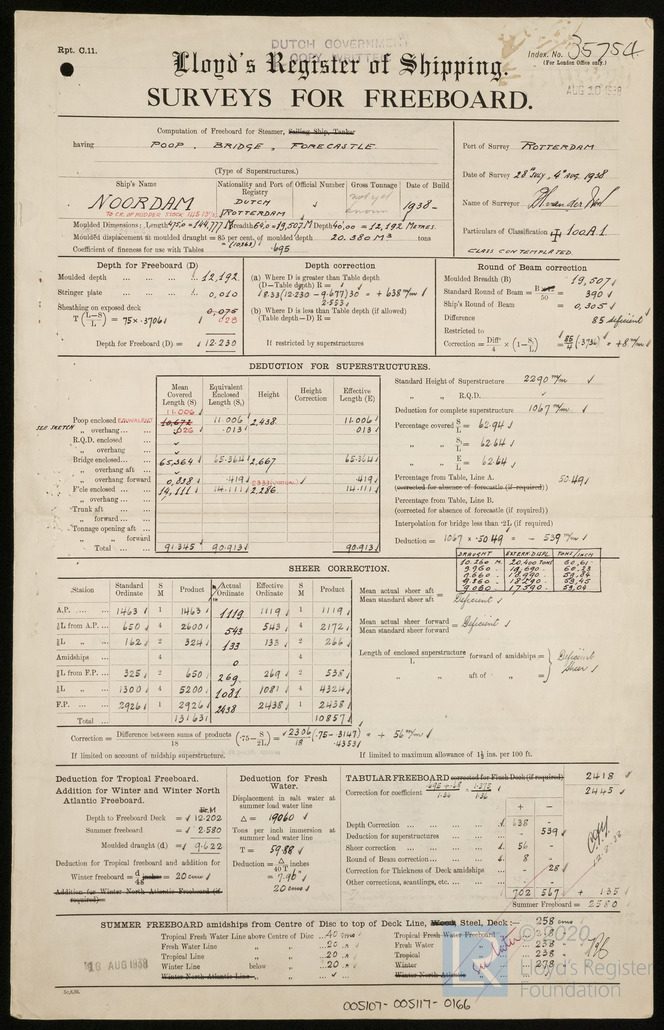 Rpt. C.11.
DUTCH GOVERNMENT
COPY WRITTEN
Index. No. 35754
(For London Office only.)
Lloyd's Register of Shipping.
AUG 10 1938
SURVEYS FOR FREEBOARD.
Computation of Freeboard for Steamer, Sailing Ship, Tanker
having POOP, BRIDGE, FORECASTLE
(Type of Superstructures.)
Port of Survey ROTTERDAM
Date of Survey 28th JULY, 4th AUG. 1938
Name of Surveyor
Particulars of Classification 100A.1.
CLASS CONTEMPLATED.
Ship's Name
Nationality and Port of Registry
Official Number
Gross Tonnage
Date of Build
NOORDAM
DUTCH
ROTTERDAM
not yet known
1938-
Moulded Dimensions: Length 475.0 = 144,777 M Breadth 64.0 = 19,507 M Depth 40.00 = 12,192 METRES.
Moulded displacement at moulded draught = 85 per cent. of moulded depth 20.380 M3 tons
(10363)
Coefficient of fineness for use with Tables .695
Depth for Freeboard (D)
Moulded depth 12,192
Stringer plate 0,010
Sheathing on exposed deck
T (L–S/L) = 75 x .3706 .028
Depth for Freeboard (D) = 12.230
Depth correction
(a) Where D is greater than Table depth
(D–Table depth) R =
8.33 (12.230 - 9.677) 30 = + 638 m/m
2.553
(b) Where D is less than Table depth (if allowed)
(Table depth–D) R =
If restricted by superstructures
Round of Beam correction
Moulded Breadth (B) 19,507
Standard Round of Beam = B/50 = 390
Ship's Round of Beam = 0,305
Difference 85 deficient
Restricted to
Correction = Diff/4 × (1–S/L) = 85/4 (.3736) = +8 m/m
DEDUCTION FOR SUPERSTRUCTURES.
Mean Covered Length (S)
Equivalent Enclosed Length (S₁)
Height
Height Correction
Effective Length (E)
SEE SKETCH
Poop enclosed EQUIVALENT 11.006 10,672 11.006 2,438 11.006
„ overhang .026 .013 .013
R.Q.D. enclosed
„ overhang
Bridge enclosed 65,364 65.364 2,667 65.364
„ overhang aft
„ overhang forward 0,838 .419 .419
F'cle enclosed 14,111 14.111 2.286 14.111
„ overhang
Trunk aft
„ forward
Tonnage opening aft
„ „ forward
Total 91.345 90.913 90.913
Standard Height of Superstructure 2290 m/m
„ „ R.Q.D.
Deduction for complete superstructure 1067 m/m
Percentage covered S/L = 62.94
„ „ S₁/L = 62.64
„ „ E/L = 62.64
Percentage from Table, Line A. 50.49
(corrected for absence of forecastle (if required))
Percentage from Table, Line B.
(corrected for absence of forecastle (if required)
Interpolation for bridge less than ·2L (if required)
Deduction = 1067 x .50 49 = - 539 m/m
SHEER CORRECTION.
Station
Standard Ordinate
S M
Product
Actual Ordinate
Effective Ordinate
S M
Product
A.P. 1463 1 1463 1119 1119 1 1119
⅙L from A.P. 650 4 2600 543 543 4 2172
⅓L „ 162 2 324 133 133 2 266
Amidships 4 0 4
⅓L from F.P. 325 2 650 269 269 2 538
⅙L „ 1300 4 5200 1081 1081 4 4324
F.P. 2926 1 2926 2438 2438 1 2438
Total 13163 10857
DRAUGHT EXTERN. DISPL. TONS/INCH
10.260 M. 20,400 TONS 60.61
9.060 17.590 59.04
Mean actual sheer aft
Mean standard sheer aft = Deficient
Mean actual sheer forward
Mean standard sheer forward = Deficient
Length of enclosed superstructure/L forward of amidships =
„ aft of „ =
Deficient Sheer
Correction = Difference between sums of products/18 (·75–S/2L) = 2306/18 (.75 - .3147) = + 56 m/m
.4353
If limited on account of midship superstructure.
If limited to maximum allowance of 1½ ins. per 100 ft.
Deduction for Tropical Freeboard.
Addition for Winter and Winter North Atlantic Freeboard.
Depth to Freeboard Deck = 12.202
Summer freeboard = 2.580
Moulded draught (d) = 9.622
Deduction for Tropical freeboard and addition for
Winter freeboard = d/48 = 20 cm
Addition for Winter North Atlantic Freeboard (if required) =
Deduction for Fresh Water.
Displacement in salt water at summer load water line
Δ = 19060
Tons per inch immersion at summer load water line
T = 59.88
Deduction = Δ/40T inches
= 7.96"
20 cms
TABULAR FREEBOARD corrected for Flush Deck (if required) 2418
Correction for coefficient .695 + .68/1.36 1.375/1.36 2445
+ –
Depth Correction 638 -
Deduction for superstructures - 539
Sheer correction 56 -
Round of Beam correction 8 -
Correction for Thickness of Deck amidships - 28
Other corrections, scantlings, etc.
702 567 + 135
Summer Freeboard = 2580
SUMMER FREEBOARD amidships from Centre of Disc to top of Deck Line, Wood Steel, Deck:— 258 cms
Tropical Fresh Water Line above Centre of Disc 40 cms
Fresh Water Line „ „ 20 „
Tropical Line „ „ 20 „
Winter Line below „ 20 „
Winter North Atlantic Line „ „
Tropical Fresh Water Freeboard 218
Fresh Water „ 238
Tropical „ 238
Winter „ 278
Winter North Atlantic „
10 AUG 1938
© 2020
LR
Lloyd's Register
Foundation
005107-005117-0166